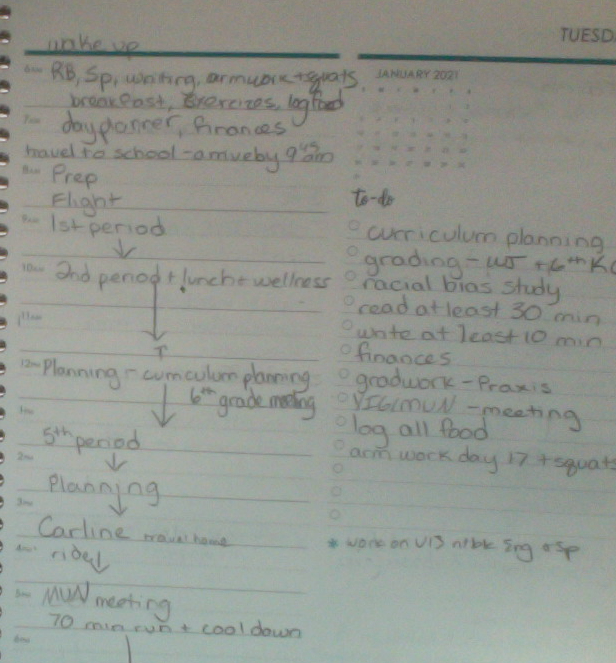 TUESD
wake up
6AM RB, Sp, writing, armwork + squats
breakfast, Exercizes, log food
7AM dayplanner, finances
travel to school - arrive by 9 45 am
8AM Prep
Flight
9AM 1st period
10AM 2nd period + lunch + wellness
11AM
12PM Planning - curriculum planning
6th grade meeting
1PM
5th period
2PM
Planning
3PM
Carline travel home
4PM ride
5PM MUN meeting
70 min run + cool down
6PM
JANUARY 2021
to-do
curriculum planning
grading - + 6th
racial bias study
read at least 30 min
write at least 10 min
finances
gradwork - Praxis
meeting
log all food
arm work day 17 + squats
* work on Eng + Sp